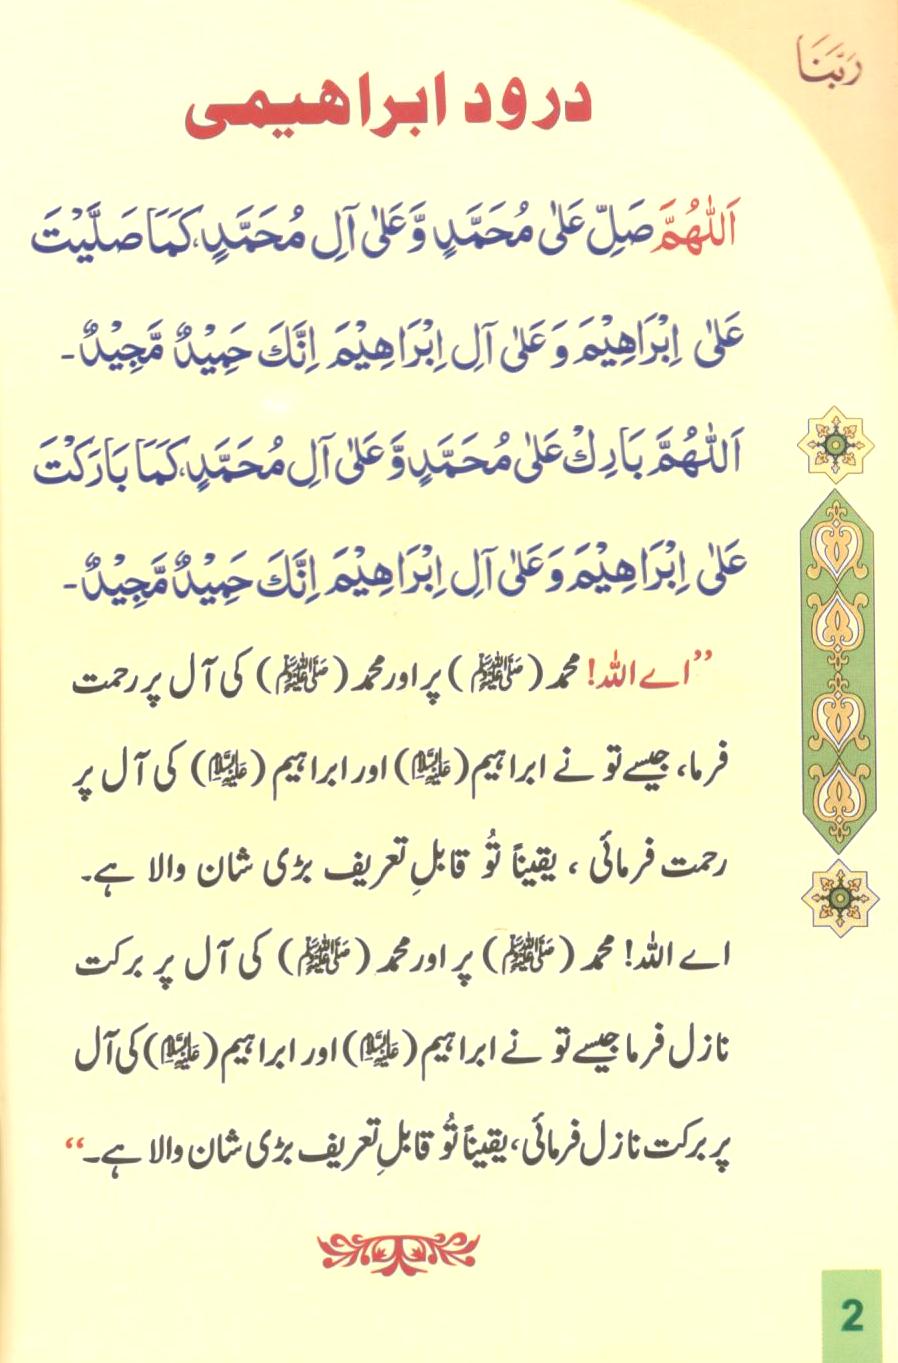 رَبَّنَا
درود ابراهیمی
اَللّٰهُمَّ صَلِّ عَلٰی مُحَمَّدٍ وَّعَلٰی آلِ مُحَمَّدٍ، کَمَا صَلَّیْتَ
عَلٰی اِبْرَاهِیْمَ وَ عَلٰی آلِ اِبْرَاهِیْمَ اِنَّكَ حَمِیْدٌ مَّجِیْدٌ۔
اَللّٰهُمَّ بَارِكْ عَلٰی مُحَمَّدٍ وَّ عَلٰی آلِ مُحَمَّدٍ، کَمَا بَارَکْتَ
عَلٰی اِبْرَاهِیْمَ وَعَلٰی آلِ اِبْرَاهِیْمَ اِنَّكَ حَمِیْدٌ مَّجِیْدٌ۔
”اے اللہ! محمد (ﷺ) پر اور محمد (ﷺ) کی آل پر رحمت
فرما، جیسے تو نے ابراہیم (علیہ السلام) اور ابراہیم (علیہ السلام) کی آل پر
رحمت فرمائی ، یقیناً تُو قابلِ تعریف بڑی شان والا ہے۔
اے اللہ! محمد (ﷺ) پر اور محمد (ﷺ) کی آل پر برکت
نازل فرما جیسے تو نے ابراہیم (علیہ السلام) اور ابراہیم (علیہ السلام) کی آل
پر برکت نازل فرمائی، یقیناً تُو قابلِ تعریف بڑی شان والا ہے۔“
2